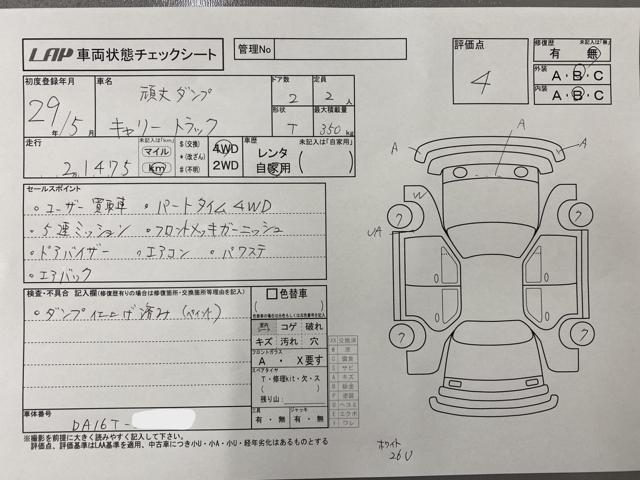 LAP 車両状態チェックシート
管理No
評価点
4
修復歴 未記入は「無」
有・無
外装 A・B・C
内装 A・B・C
初度登録年月
29年/5月
車名
頑丈ダンプ
キャリートラック
ドア数
2
定員
2人
形状
T
最大積載量
350kg
走行
2,1475
未記入は「km」
マイル
km
$(交換)
*(改ざん)
#(不明)
4WD
2WD
車歴 未記入は「自家用」
レンタ
自家用
セールスポイント
・ユーザー買取車 ・パートタイム4WD
・5速ミッション ・フロントメッキガーニッシュ
・ドアバイザー ・エアコン ・パワステ
・エアバック
検査・不具合 記入欄(修復歴有りの場合は修復箇所・交換箇所等理由を記入)
・ダンプ仕上げ済み(ペイント)
色替車
コゲ 破れ
キズ 汚れ 穴
フロントガラス
A ・ X要す
スペアタイヤ
T・修理kit・欠・ス
残り山:
工具
有・無
ジャッキ
有・無
XX 交換済
A キズ
車体番号
DA16T-
※撮影を前提に大きく読みやすく記入して下さい。
評価点、評価基準はLAA基準を適用、中古車につき小U・小A・小U・経年劣化はあるものとする
A
A
A
W
UA
7
7
7
7
ホワイト
26U